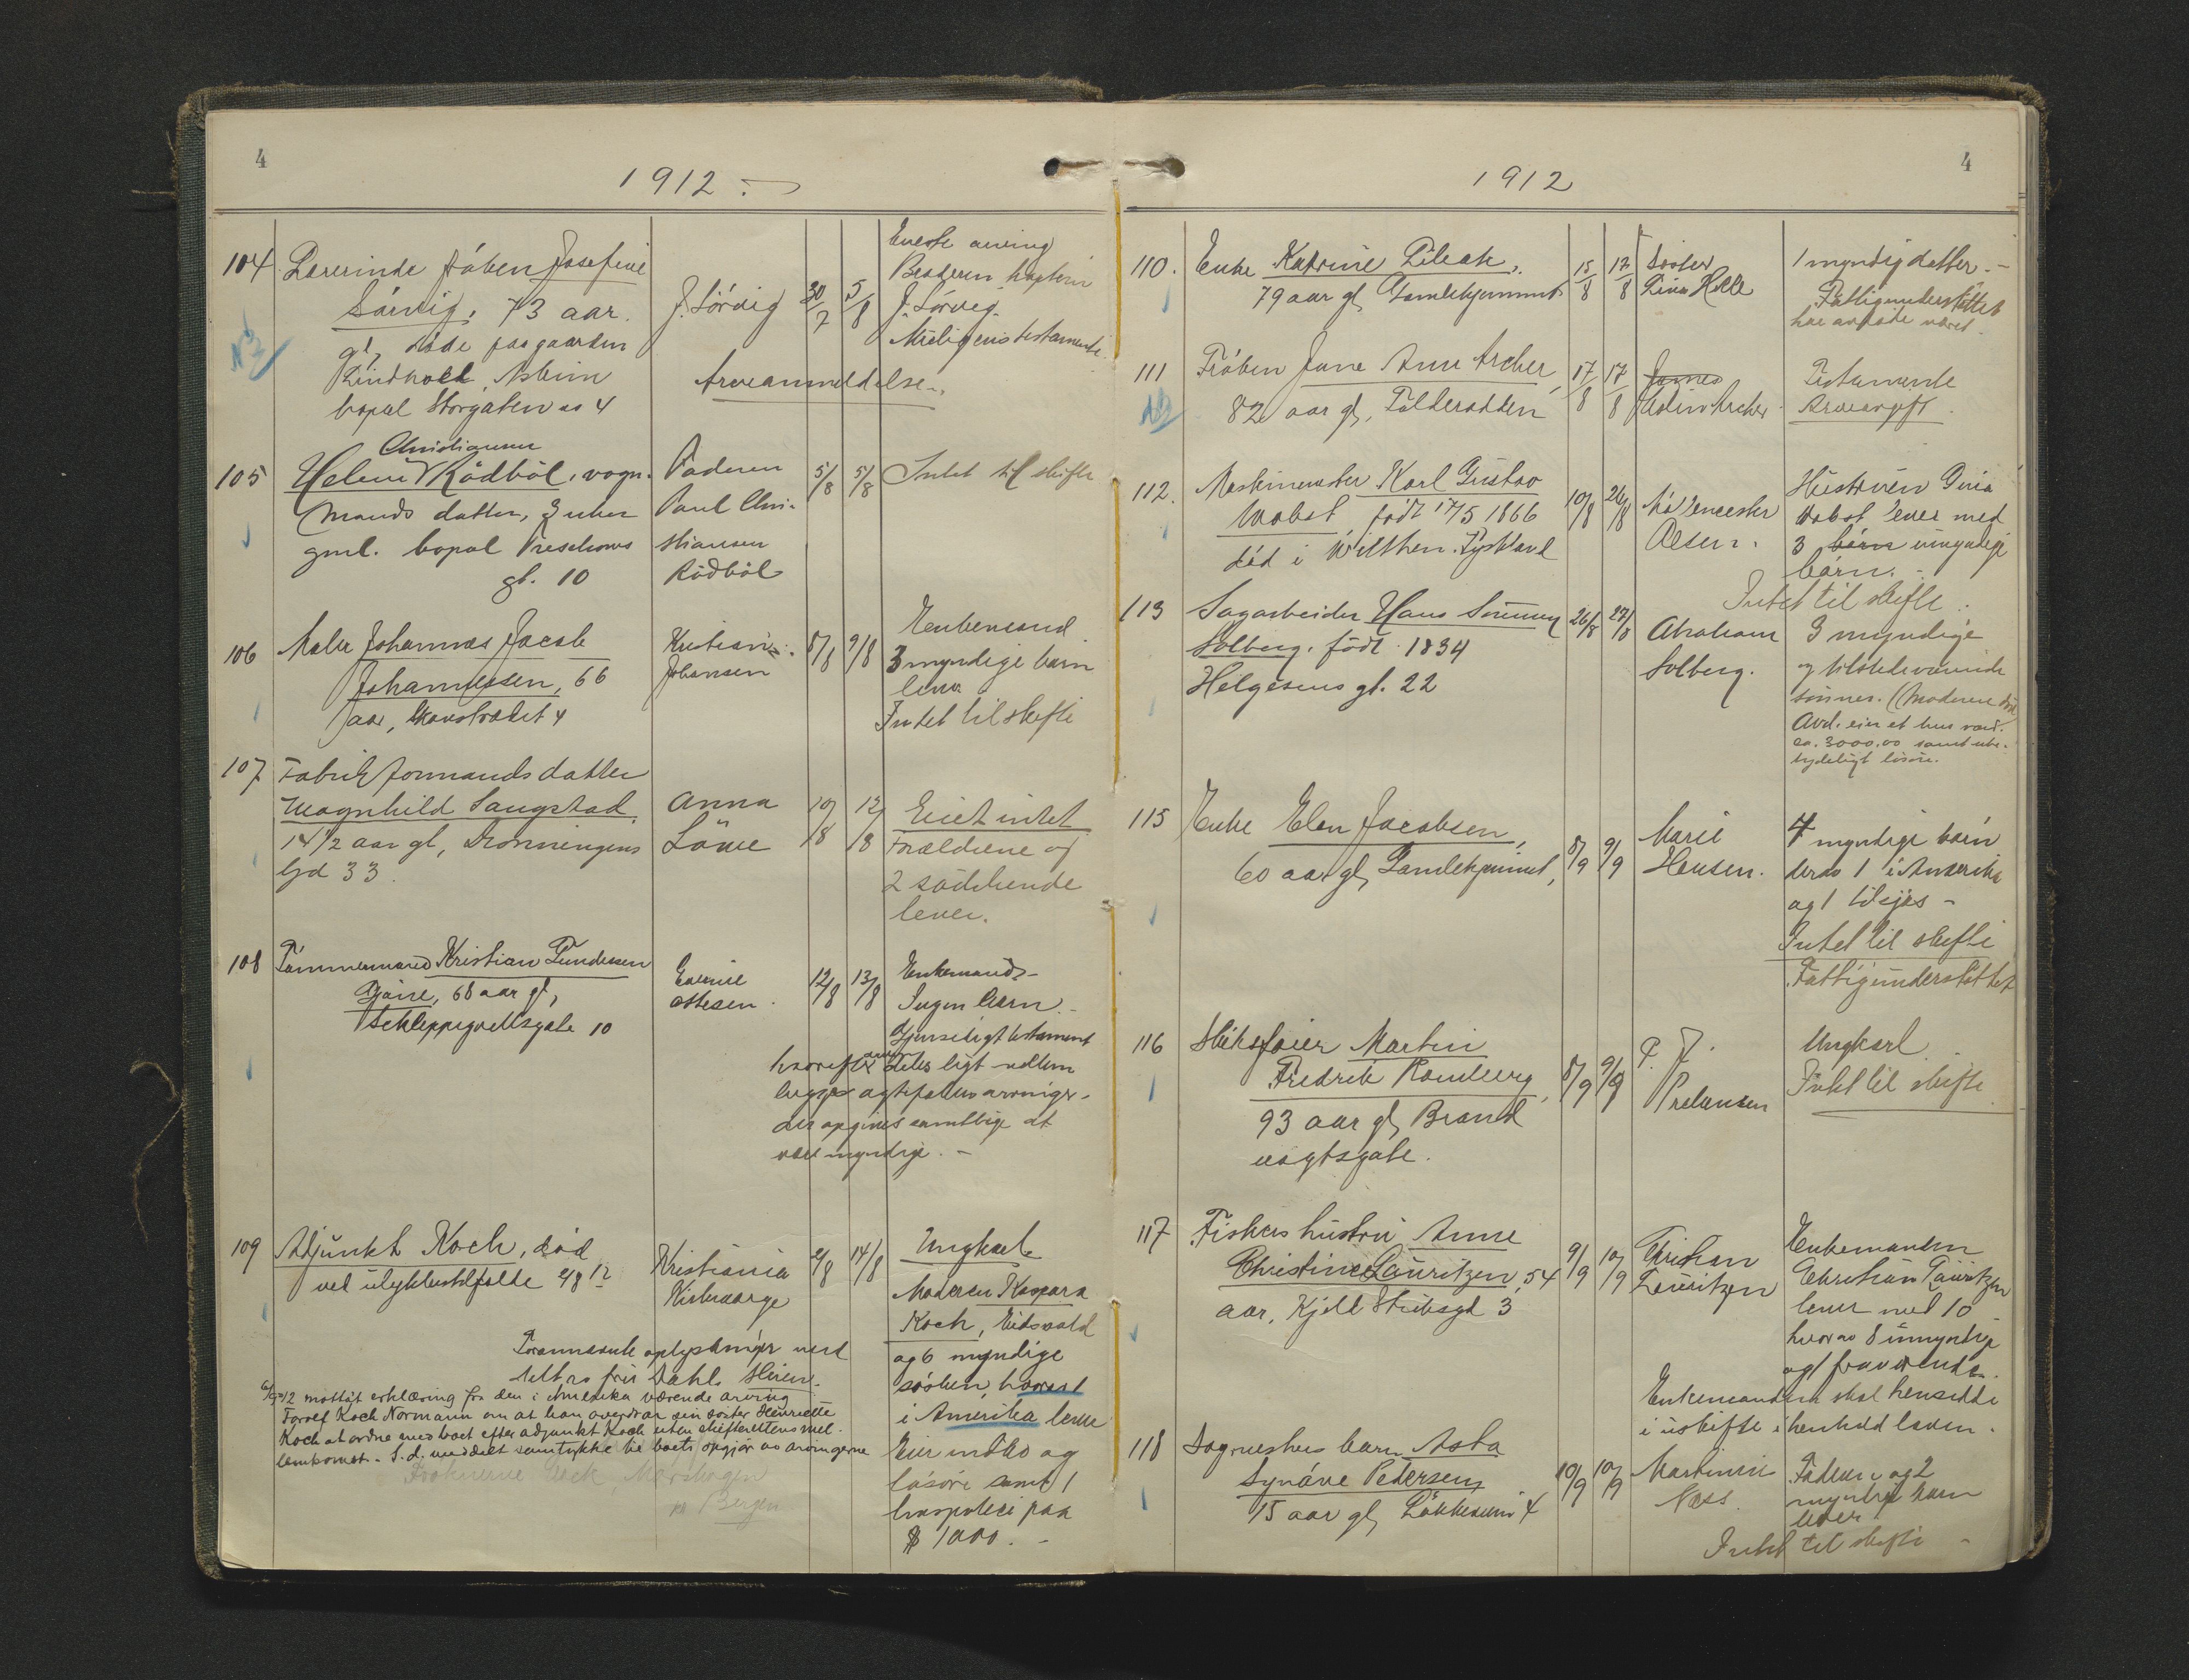 4
1912
104. Lærerinde frøken Josefine
Sørvig, 73 aar
gl, døde paa gaarden
Lindholt, Askim
bopæl Storgaten no 4
NB
J. Sörvig
30/7
5/8
Eneste arving
Broderen kaptein
J. Sørvig.
Muligens testamente.
Arveanmeldelse.
105
Christiansen
Helene Rödböl, vogn-
mands datter, 3 uker
gml. bopæl Treschows
gt. 10
Faderen
Paul Chri-
stiansen
Rödböl
5/8
5/8
Intet til skifte
106
Maler Johannes Jacob
Johannessen, 66
aar, Skovstrædet 4
Kristian
Johansen
8/8
9/8
Enkemand
3 myndige barn
lever
Intet til skifte
107
Fabrikformands datter
Magnhild Langstad,
14 1/2 aar gl, Dronningens
gd 33.
Anna
Löwe
10/8
12/8
Eiet intet
Forældrene og
2 södskende
lever.
108
Tømmermand Kristian Gundersen
Gjøne, 68 aar gl,
Schleppegrellsgate 10
Ottesen.
12/8
13/8
Enkemand-
Ingen barn.-
Gjensidigt testament
hvorefter arven deles likt mellem
begge ægtefællers arvinger-
der opgives samtlige at
være myndige. -
109
Adjunkt Koch, död
ved ulykkestilfælde 2/8 12
Kristiania
2/8
14/8
Ungkarl
Moderen Kaspara
Koch, Eidsvold
og 6 myndige
søsken, hvorav 1
i Amerika lever
Eier indbo og
løsøre samt 1
haspoteci paa
$ 1000. -
Forannævnte oplysninger ved
Dahl, Skien.
12 mottat erklæring fra den i Amerika værende arving
Torolf Koch Normann om at han overdrar sin søster Henriette
Koch at ordne med boet efter adjunkt Koch uten skifterettens mel-
lemkomst. S.d. meddelt samtykke til boets opgjør av arvingerne
Bergen
4
1912
110. Enke Katrine Pileak,
79 aar gl, Gamlehjemmet
15/8
17/8
Søster
Lina Helle
1 myndig datter.-
Fattigunderstøttet
har avdøde været.
111
Frøken Jane Anne Archer,
82 aar gl, Tolderodden
NB
17/8
17/8
James
Colin Archer
Testamente
Arveavgift.
112.
Maskinmester Karl Gustav
Wabst, født 17/5 1866
död i Wilthen. Tyskland
10/8
26/8
Olsen.
Hustruen Gina
Wabst lever med
3 børn umyndige
børn.
Intet til skifte.
113
Sagarbeider Hans
Solberg. födt 1834
Helgesens gt. 22
26/8
27/8
Abraham
Solberg.
3 myndige
og tilstedeværende
sønner. (Moderen død
Avd. eier et hus værd.
ca. 3000.00 samt ube-
tydeligt løsøre.
115
Enke Elen Jacobsen,
60 aar gl, Gamlehjemmet,
8/9
9/9
Marie
Hansen.
4 myndige børn
derav 1 i Amerika
og 1 tilsjøs -
Intet til skifte
Fattigunderstøttet
116
Skibsfører Martin
Fredrik Romberg,
93 aar gl, Brand
vagtsgate.
8/9
9/9
P. J.
Ungkarl
Intet til skifte
117
Fiskers hustru Anne
Christine Lauritzen, 54
aar, Kjell Stubsgt 3
9/9
10/9
Christian
Lauritzen
Enkemanden
Christian Lauritzen
lever med 10
hvorav 8 umyndige
og 1 fraværende.
Enkemanden skal hensidde
i uskifte i henhold loven.
118
Sagmesters barn Asta
Synøve Petersen,
15 aar gl, Løkkebunn 4
10/9
10/9
Martinius
Næss.
Faderen og 2
myndige barn
lever
Intet til skifte